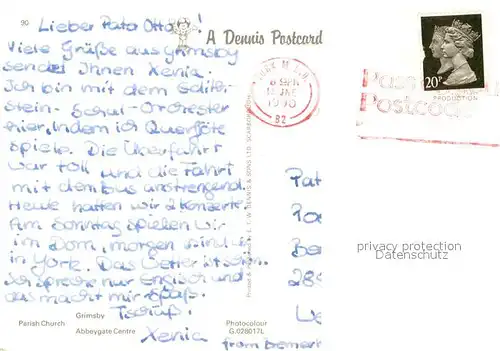 90
Lieber Pater Otto!
Viele Grüße aus Grimsby
sendet Ihnen Xenia.
Ich bin mit dem Edith-
Stein-Schul-Orchester
hier, indem ich Querflöte
spiele. Die Überfahrt
war toll und die Fahrt
mit dem Bus anstrengend.
Heute hatten wir 2 Konzerte
Am Sonntag spielen wir
im Dom, morgen sind wir
in York. Das Wetter ist schön.
Ich spreche nur Englisch und
das macht mir Spaß.
Tschüß!
Xenia
Parish Church Grimsby
Abbeygate Centre
Photocolour
G.028017L
A Dennis Postcard
E. T. W. DENNIS & SONS LTD. SCARBOROUGH
1990
82
20P
Postcode
Pat
Be
from
privacy protection
Datenschutz